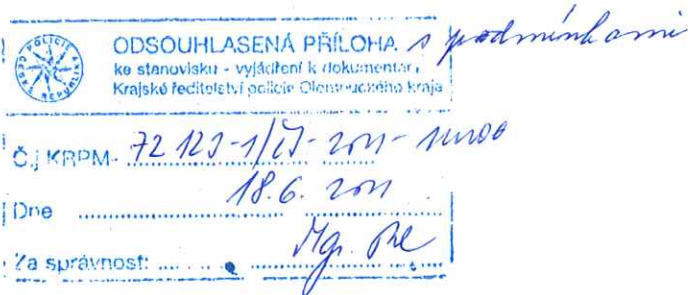 POLICIE ČESKÉ REPUBLIKY
ODSOUHLASENÁ PŘÍLOHA s podmínkami
ke stanovisku - vyjádření k dokumentaci
Krajské ředitelství policie Olomouckého kraje
Č.j KRPM- 72 123-1/ČJ- 2011-
Dne 18.6. 2011
Za správnost: Mgr.